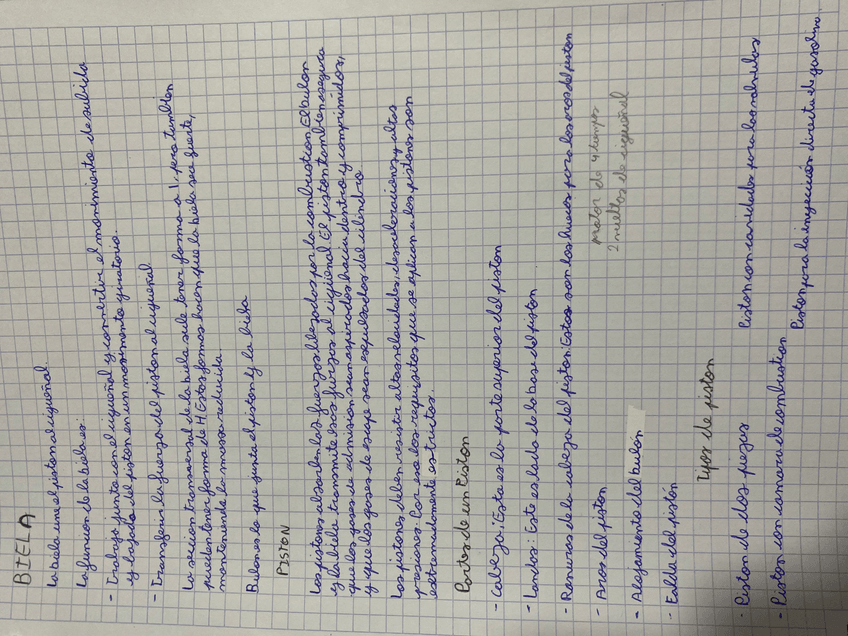 BIELA
La biela une el piston al cigueñal.
La funcion de la biela es:
- Trabaja junto con el cigueñal y convertir el movimiento de subida
y bajada del piston en un movimiento giratorio.
- Transfiere la fuerza del piston al cigueñal
La sección transversal de la biela suele tener forma a I, pero tambien
pueden tener forma de H. Estas formas hacen que la biela sea fuerte,
manteniendo la massa reducida.
Bulon es lo que junta el piston y la biela
PISTON
Los pistones absorben las fuerzas liberadas por la combustion. El bulon
y la biela transmite esas fuerzas al cigueñal. El piston tambien asegura
que los gases de admision sean aspirados hacia dentro y comprimidos,
y que los gases de escape sean expulsados del cilindro.
Los pistones deben resistir altas velocidades, desaceleraciones y altas
presiones. Por eso los requisitos que se aplican a los pistones son
extremadamente estrictos.
Partes de un Piston
- Cabeza: Esta es la parte superior del piston
- Landas: Este es lado de la base del piston
- Ranuras de la cabeza del piston: Estas son los huecos para los aros del piston
- Aros del piston
motor de 4 tiempos
2 vueltas de cigueñal
- Alojamiento del bulón
- Falda del pistón
Tipos de piston
- Piston de dos piezas
Piston con cavidades para las valvulas
- Piston con camara de combustion
Piston para la inyección directa de gasolina.